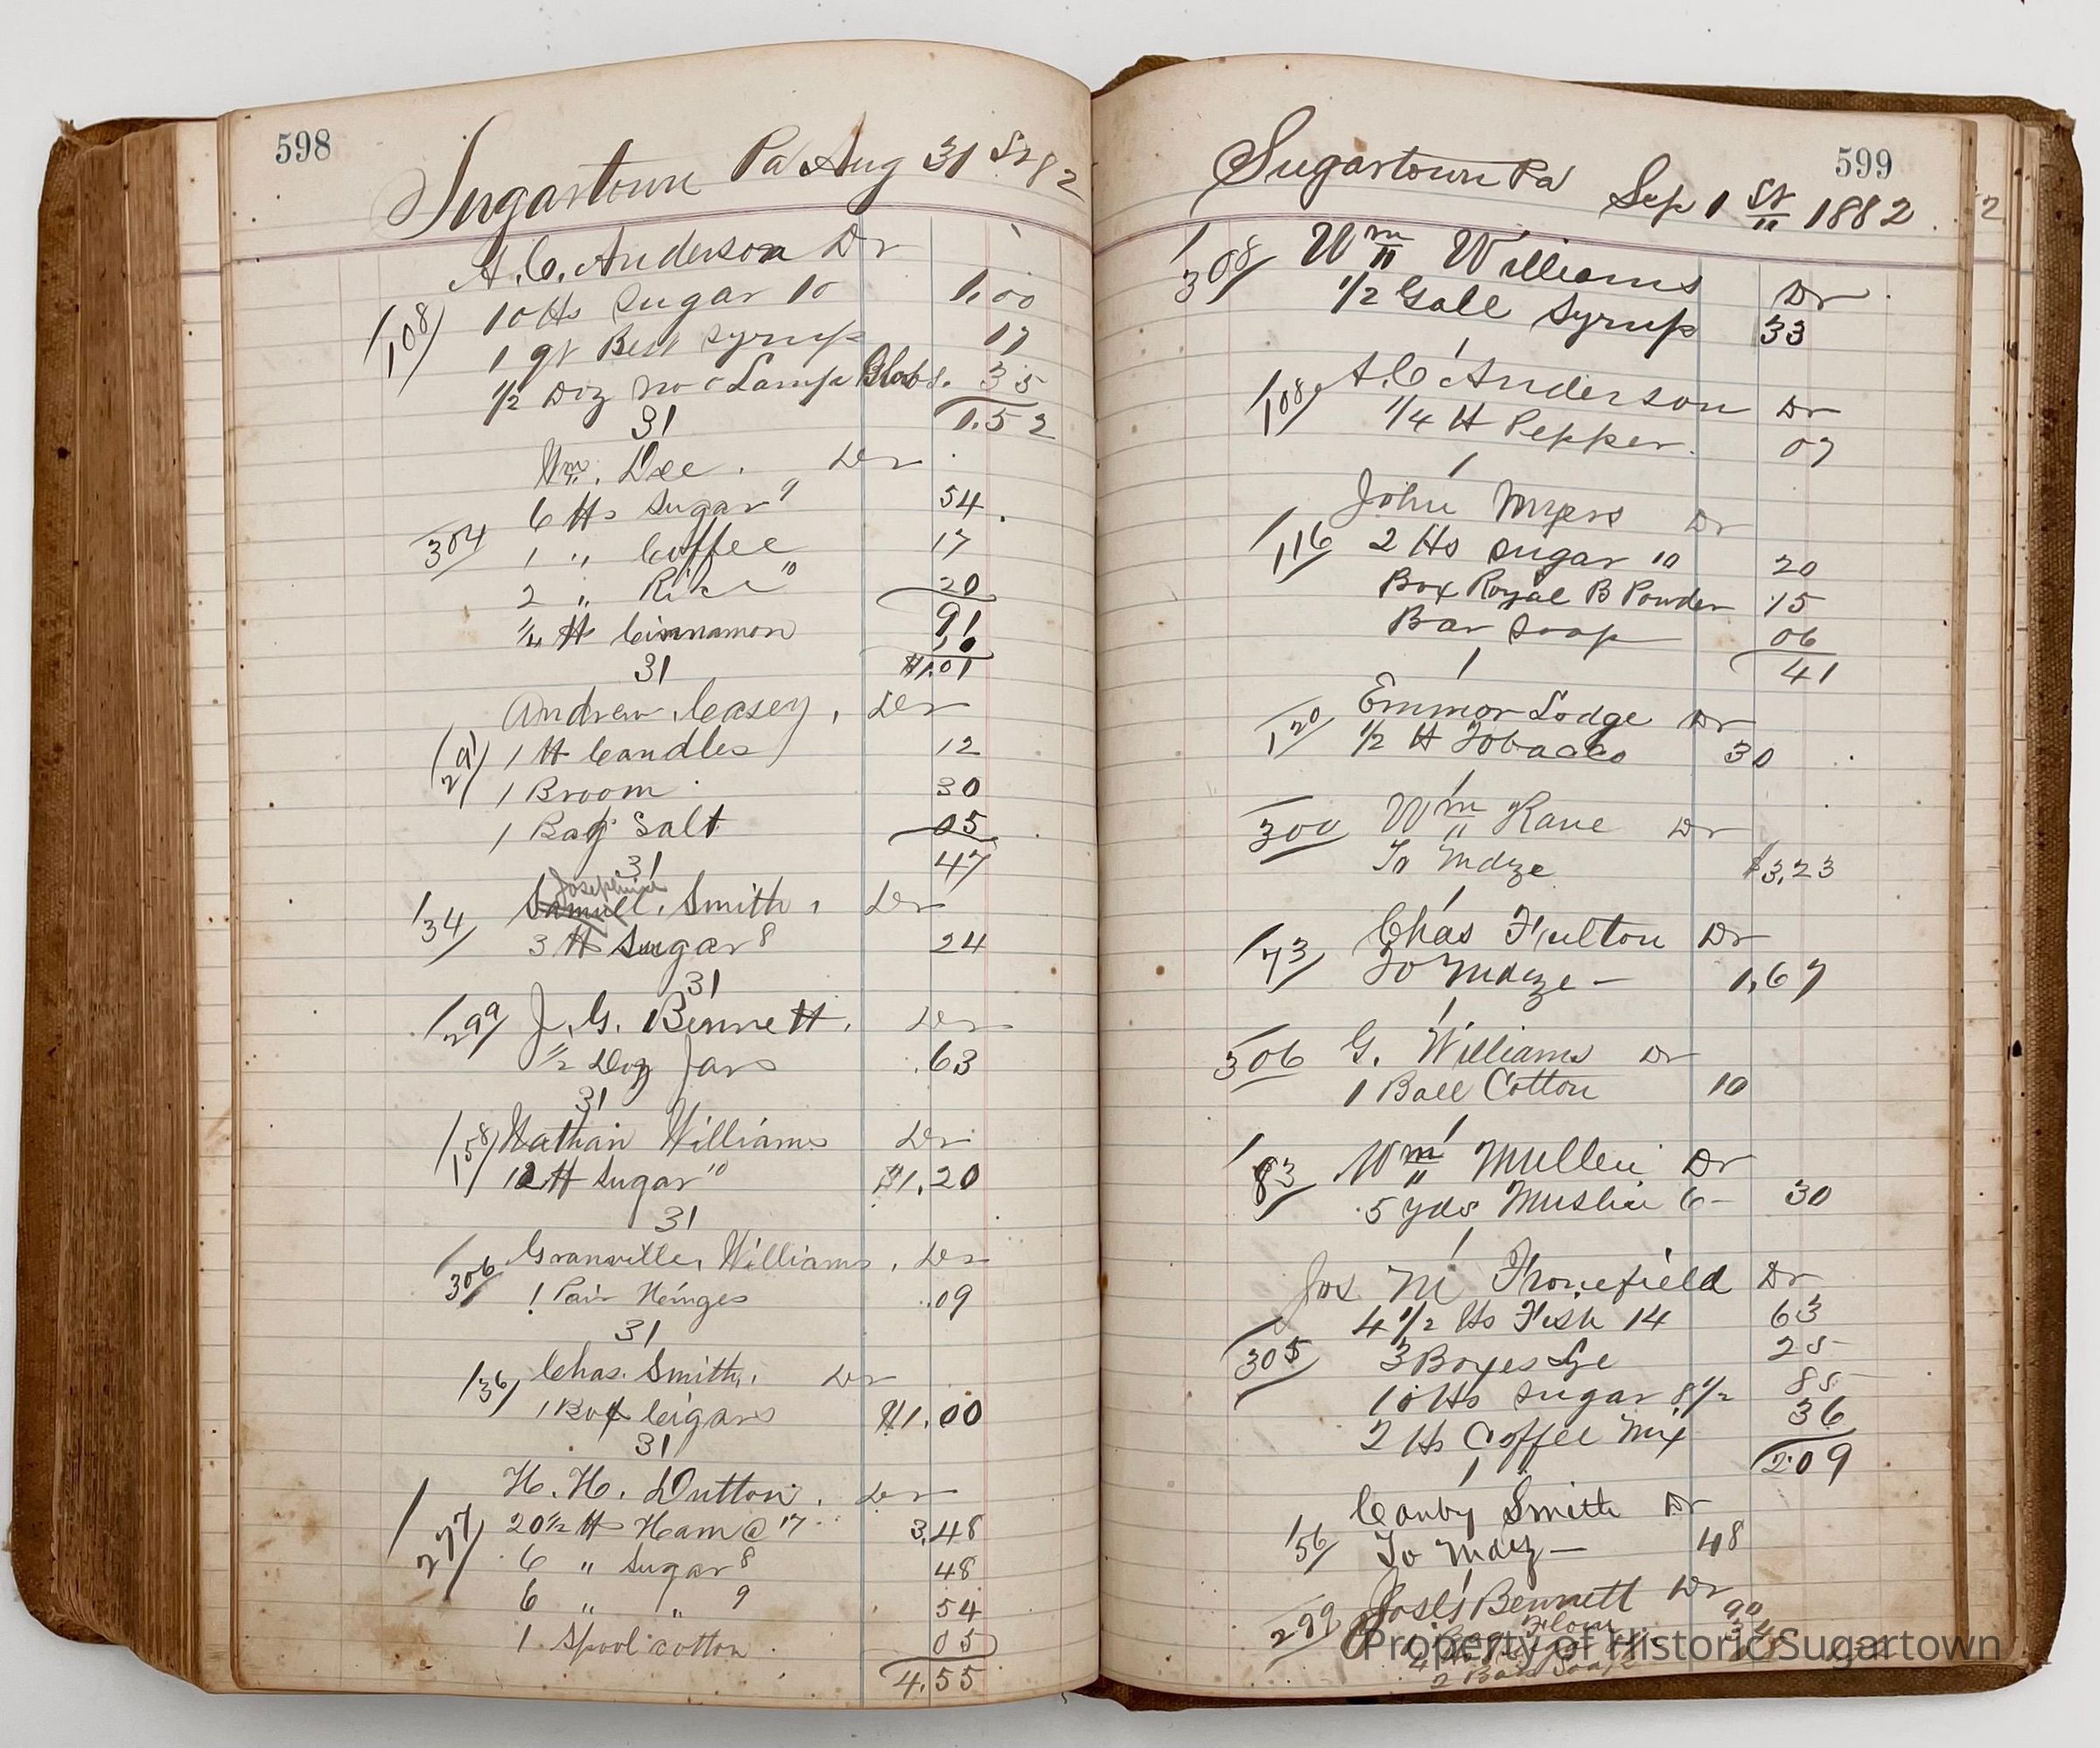 598
Sugartown Pa Aug 31 St 82
A. C. Anderson Dr
108 10 lbs Sugar 10 1.00
1 qt Best Syrup 17
1/2 Doz No 0 Lamp Globs. 35
1.52
31
Wm. Dee. Dr
6 lbs Sugar 9 54
304 1 " Coffee 17
2 " Rice 10 20
91
1/4 lb Cinnamon 10
31 $1.01
Andrew Casey, Dr
291 1 lb Candles 12
1 Broom 30
1 Bag Salt 05
31 47
Josephine
134 Samuel Smith, Dr
3 lb Sugar 8 24
31
299 J. G. Bennett, Dr
1/2 Doz Jars .63
31
158 Nathan Williams Dr
12 lb Sugar 10 $1.20
31
306 Granville Williams, Dr
1 Pair Heinges .09
31
136 Chas. Smith, Dr
1 Box Cigars $1.00
31
H. H. Dutton. Dr
277 20 1/2 lb Ham @ 17 3.48
6 " Sugar 8 48
6 " " 9 54
1 Spool cotton 05
4.55
599
Sugartown Pa Sep 1 St 1882
308 Wm Williams Dr
1/2 Gall Syrup 33
1
108 A. C. Anderson Dr
1/4 lb Pepper. 07
1
John Myers Dr
116 2 lbs Sugar 10 20
Box Royal B Powder 15
Bar Soap 06
1 41
120 Emmor Lodge Dr
1/2 lb Tobacco 30
1
300 Wm Kane Dr
To Mdze $3.23
1
173 Chas Fulton Dr
To Mdze - 1.67
1
306 G. Williams Dr
1 Ball Cotton 10
1
83 Wm Mullen Dr
5 yds Muslin 6- 30
1
Jos M Thonefield Dr
4 1/2 lbs Fish 14 63
305 3 Boxes Lye 25
10 lbs Sugar 8 1/2 85
2 lbs Coffee Mix 36
1 2.09
Canby Smith Dr
156 To Mdz - 48
1
299 Bennett Dr
1 Bag Flour 90
2 Bars Soap
Property of Historic Sugartown